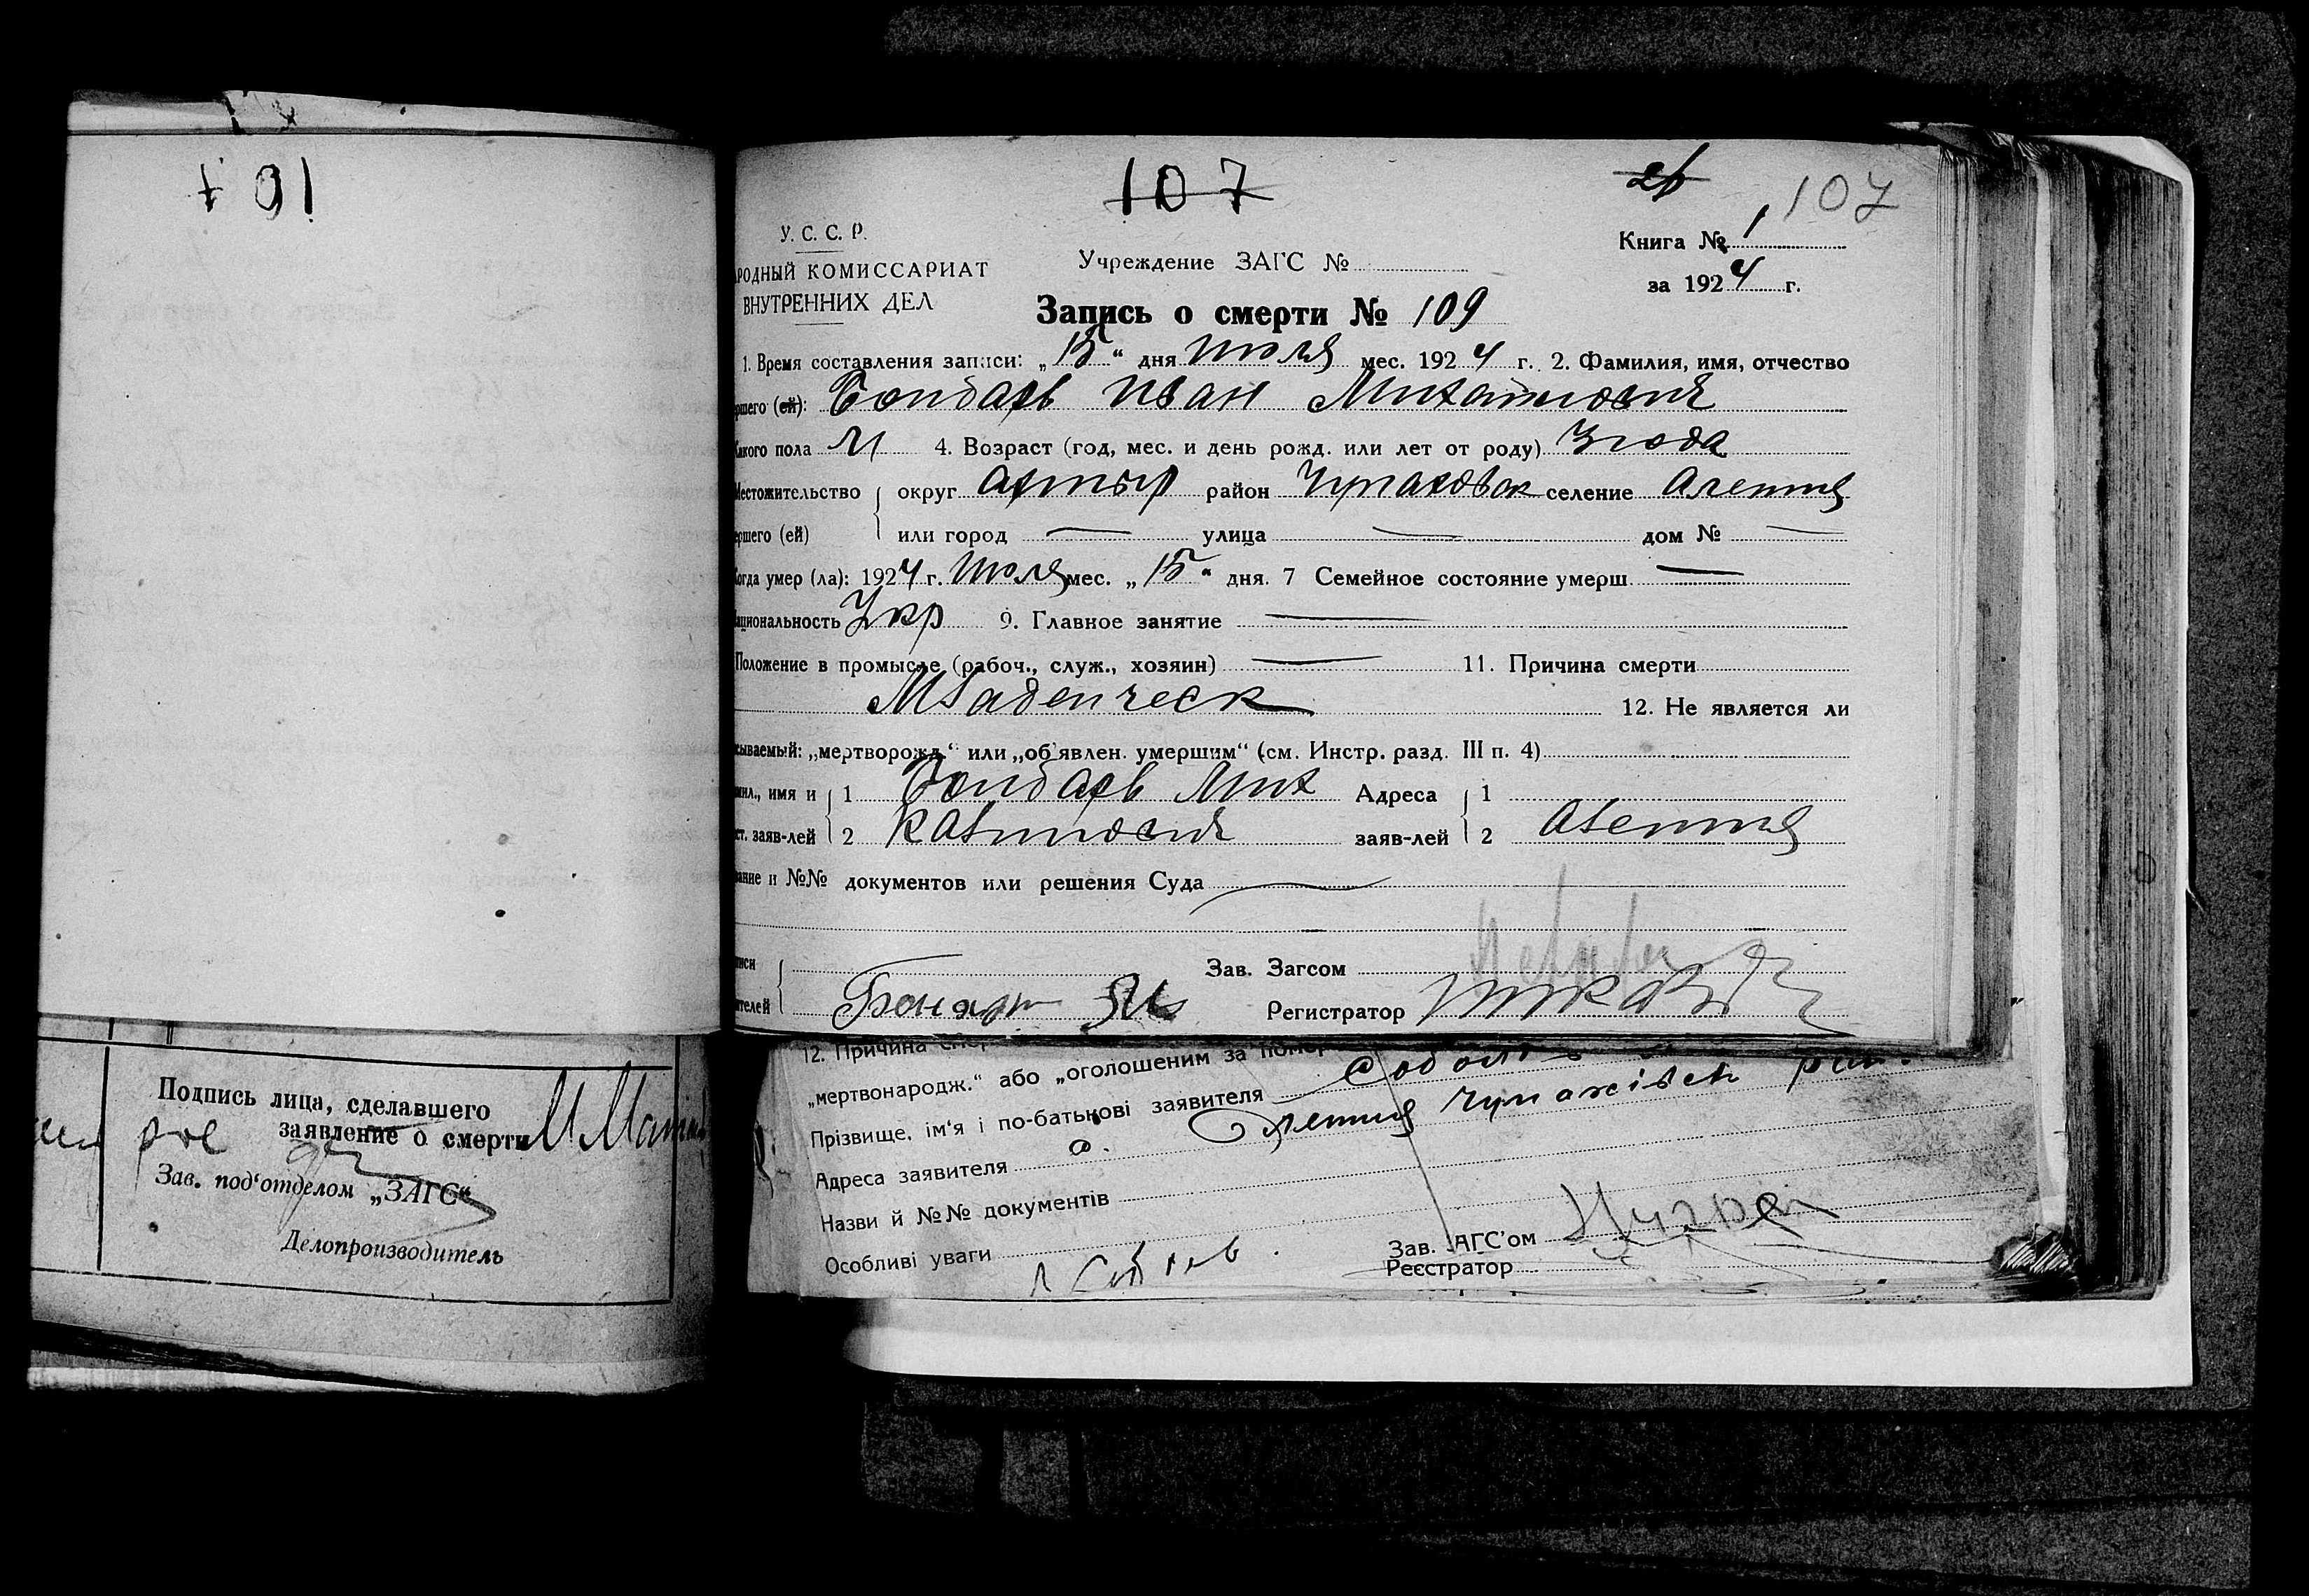 107
107
26
107
У. С. С. Р.
РОДНЫЙ КОМИССАРИАТ
ВНУТРЕННИХ ДЕЛ
Учреждение ЗАГС №
Книга № 1
за 1924 г.
Запись о смерти № 109
1. Время составления записи: „15“ дня июля мес. 1924 г. 2. Фамилия, имя, отчество
ршего (ей): Бондарь Иван Михайлович
какого пола М 4. Возраст (год, мес. и день рожд. или лет от роду) 3 года
Местожительство округ Ахтыр район Чупаховск селение Алешня
ершего (ей) или город — улица — дом № —
Когда умер (ла): 1924 г. Июля мес. „15“ дня. 7 Семейное состояние умерш. —
ациональность Укр 9. Главное занятие —
Положение в промысле (рабоч., служ., хозяин) — 11. Причина смерти
Младенческ 12. Не является ли
сываемый: „мертворожд.“ или „об'явлен. умершим“ (см. Инстр. разд. III п. 4)
мил., имя и 1 Бондарь Мих Адреса 1
ст. заяв-лей 2 заяв-лей 2 Алешня
вание и №№ документов или решения Суда
иси Зав. Загсом
ителей Регистратор
12. Причина
„мертвонародж.“ або „оголошеним за
Прізвище, ім'я і по-батькові заявителя
Адреса заявителя с. Олешня Чупахівськ рай.
Назви й №№ документів
Особливі уваги
Зав. ЗАГС'ом
Реєстратор
Подпись лица, сделавшего
заявление о смерти
Зав. под'отделом „ЗАГС“
Делопроизводитель